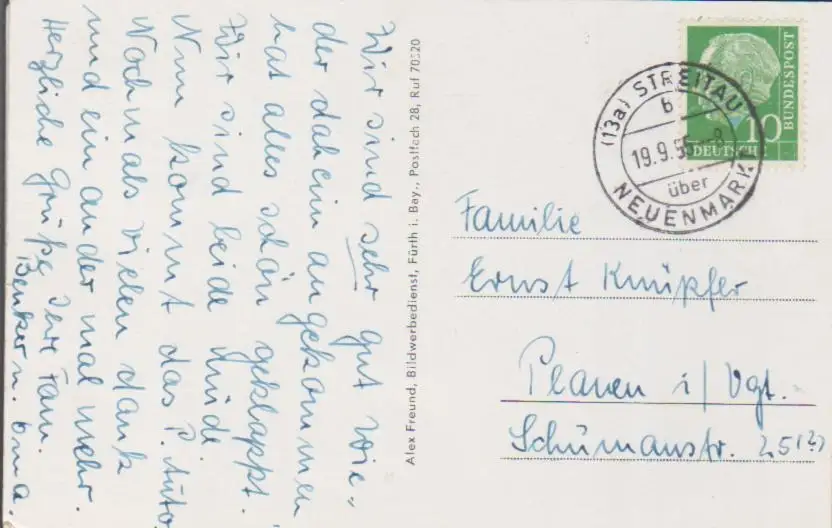 Wir sind sehr gut wie-
der daheim angekommen
hat alles schön geklappt.
Wir sind beide müde
Nun kommt das P. Auto
Nochmals vielen dank
und ein andermal mehr.
Herzliche Grüße Ihre Fam.
Benker u. Oma.
Alex Freund, Bildwerbedienst, Fürth i. Bay., Postfach 28, Ruf 70520
DEUTSCHE
BUNDESPOST
10
(13a) STREITAU
b
19.9.56-8
über
NEUENMARKT
Familie
Ernst Knüpfer
Plauen i/Vgt.
Schumanstr. 25(?)